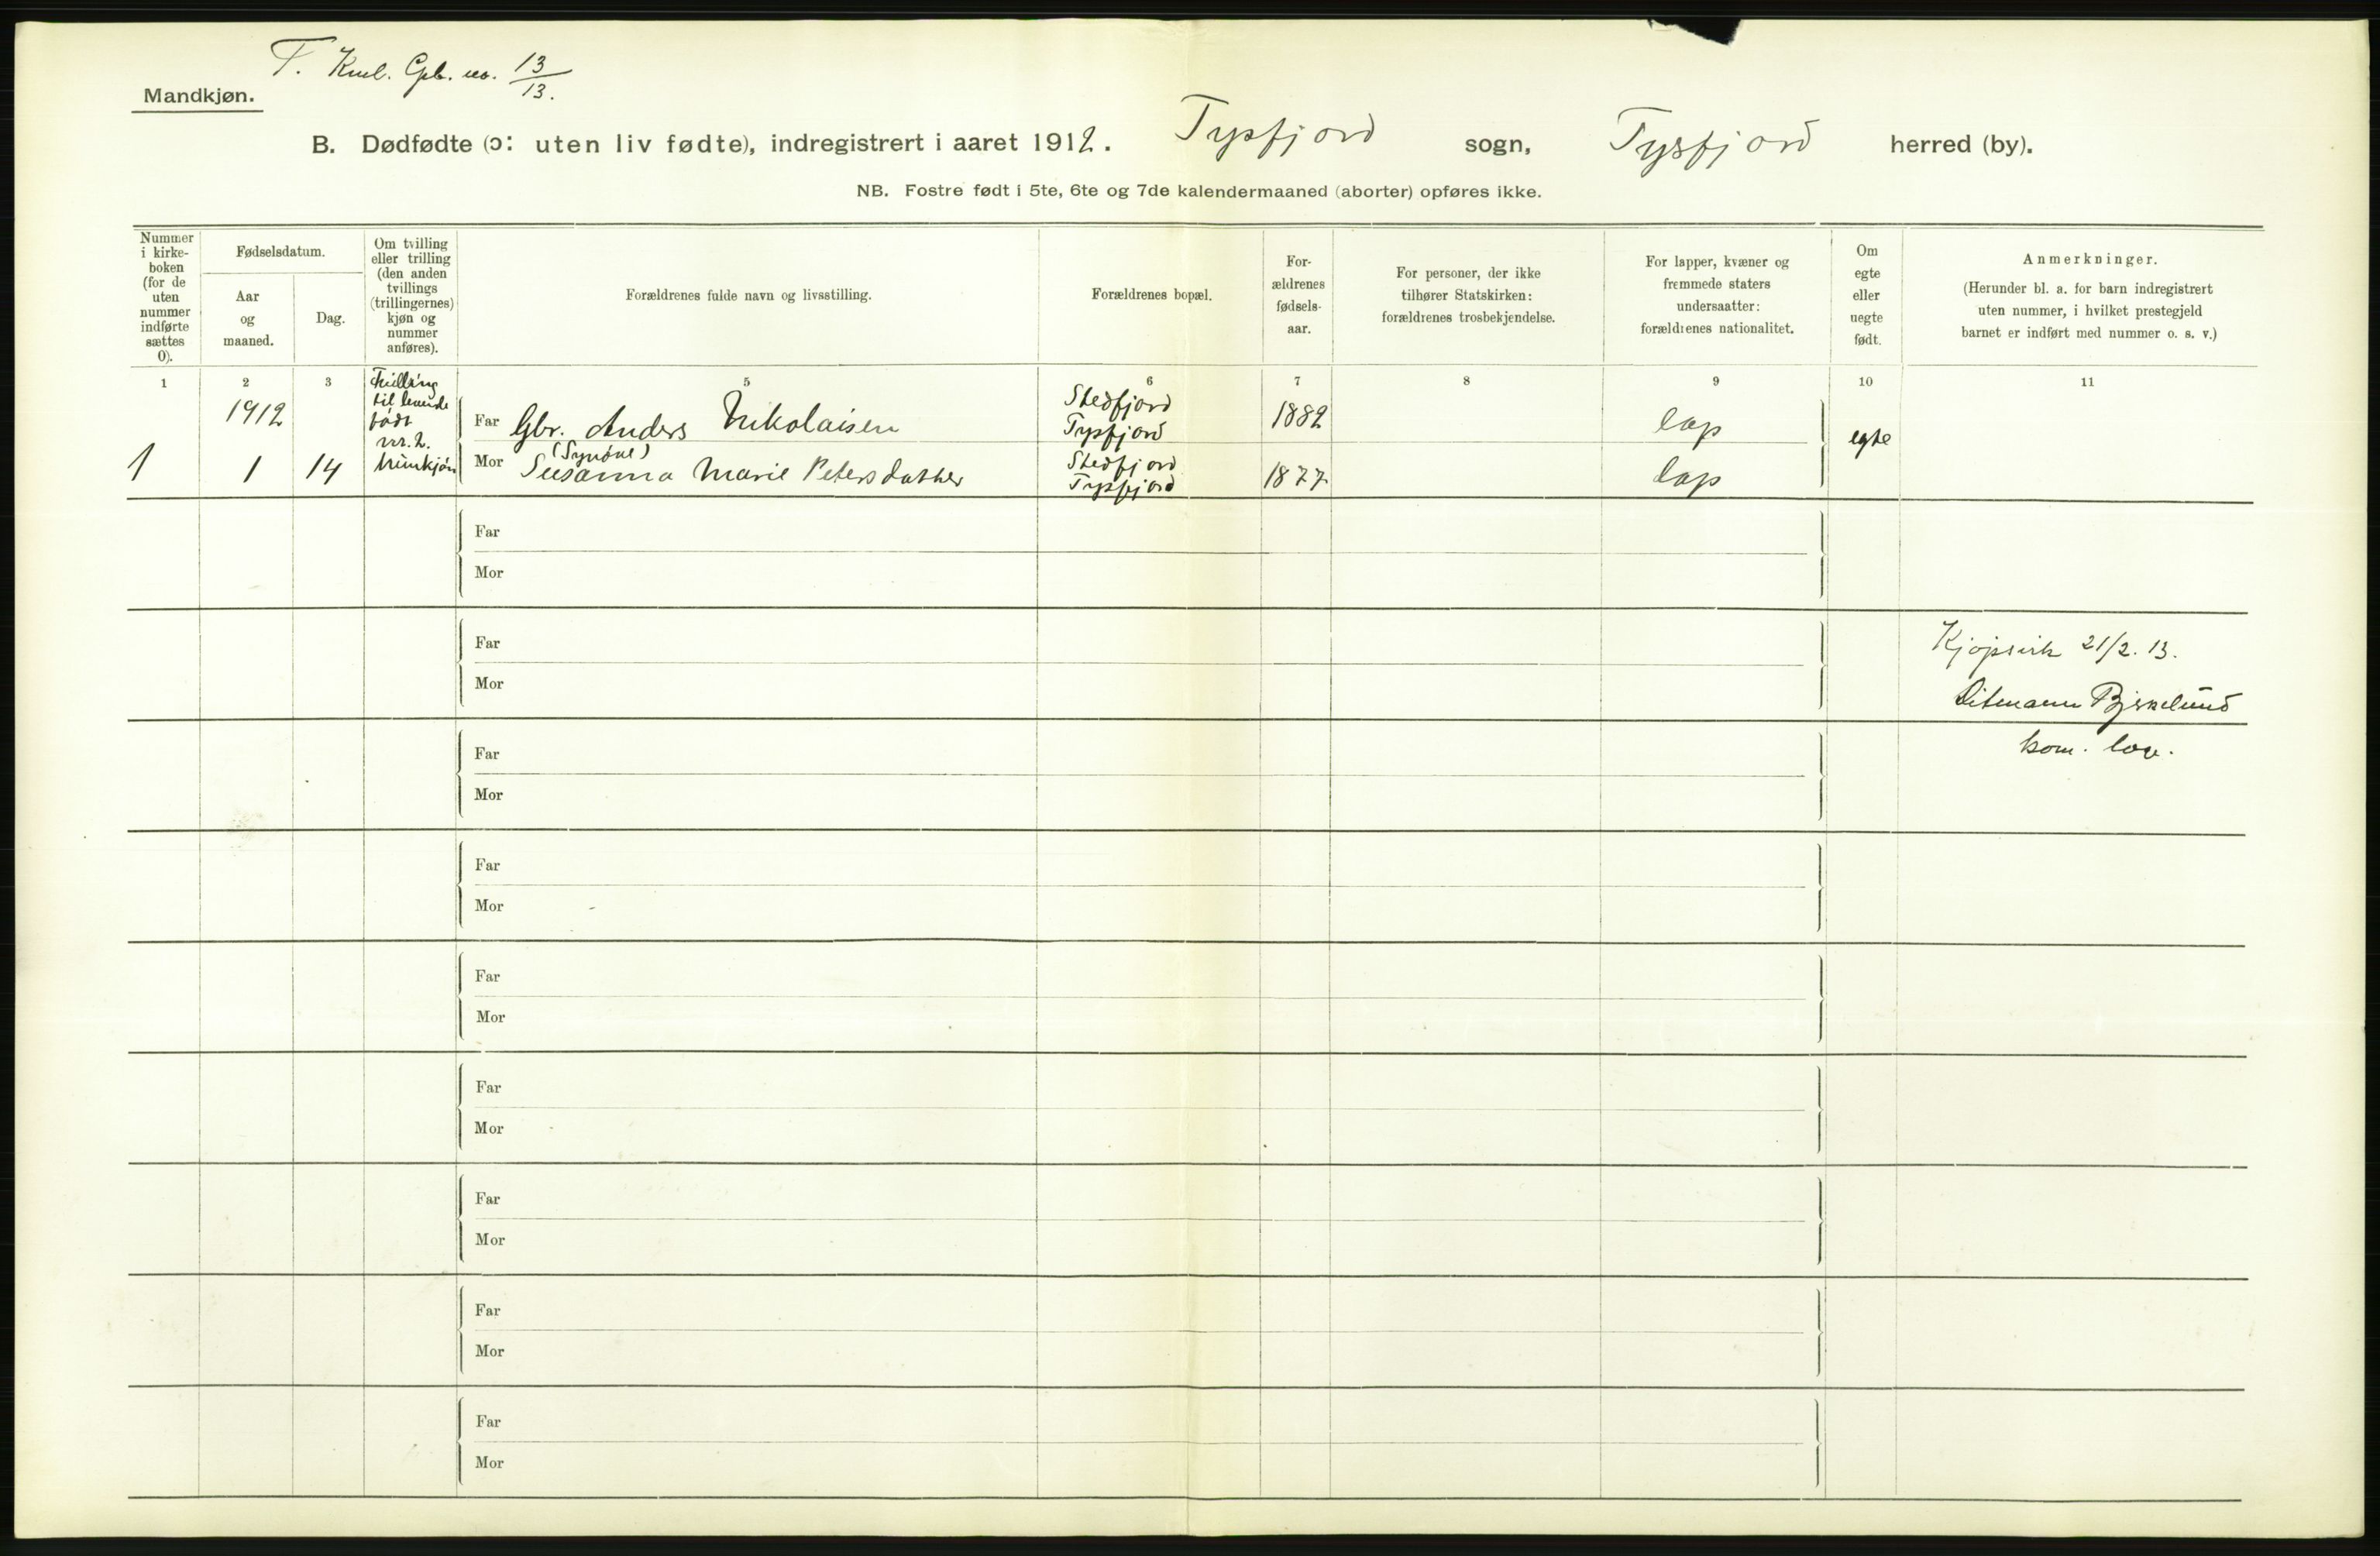 F. Knl. Gpb. no. 13/13.
Mandkjøn.
B. Dødfødte (ɔ: uten liv fødte), indregistrert i aaret 1912. Tysfjord sogn, Tysfjord herred (by).
NB. Fostre født i 5te, 6te og 7de kalendermaaned (aborter) opføres ikke.
Nummer
i kirke-
boken
(for de
uten
nummer
indførte
sættes
0).
Fødselsdatum.
Aar
og
maaned.
Dag.
Om tvilling
eller trilling
(den anden
tvillings
(trillingernes)
kjøn og
nummer
anføres).
Forældrenes fulde navn og livsstilling.
Forældrenes bopæl.
For-
ældrenes
fødsels-
aar.
For personer, der ikke
tilhører Statskirken:
forældrenes trosbekjendelse.
For lapper, kvæner og
fremmede staters
undersaatter:
forældrenes nationalitet.
Om
egte
eller
uegte
født.
Anmerkninger.
(Herunder bl. a. for barn indregistrert
uten nummer, i hvilket prestegjeld
barnet er indført med nummer o. s. v.)
1 2 3 5 6 7 8 9 10 11
1
1912
1
14
Tvilling
til levende
født
nr. 2.
kvinkjøn
Far Gbr. Anders Nikolaisen
(Synøve)
Mor Susanna Marie Petersdatter
Stedfjord
Tysfjord
Stedfjord
Tysfjord
1882
1877
lap
lap
egte
Far
Mor
Far
Mor
Kjøpsvik 21/2. 13.
Ditmann Birkelund
kom. læg.
Far
Mor
Far
Mor
Far
Mor
Far
Mor
Far
Mor
Far
Mor
Far
Mor